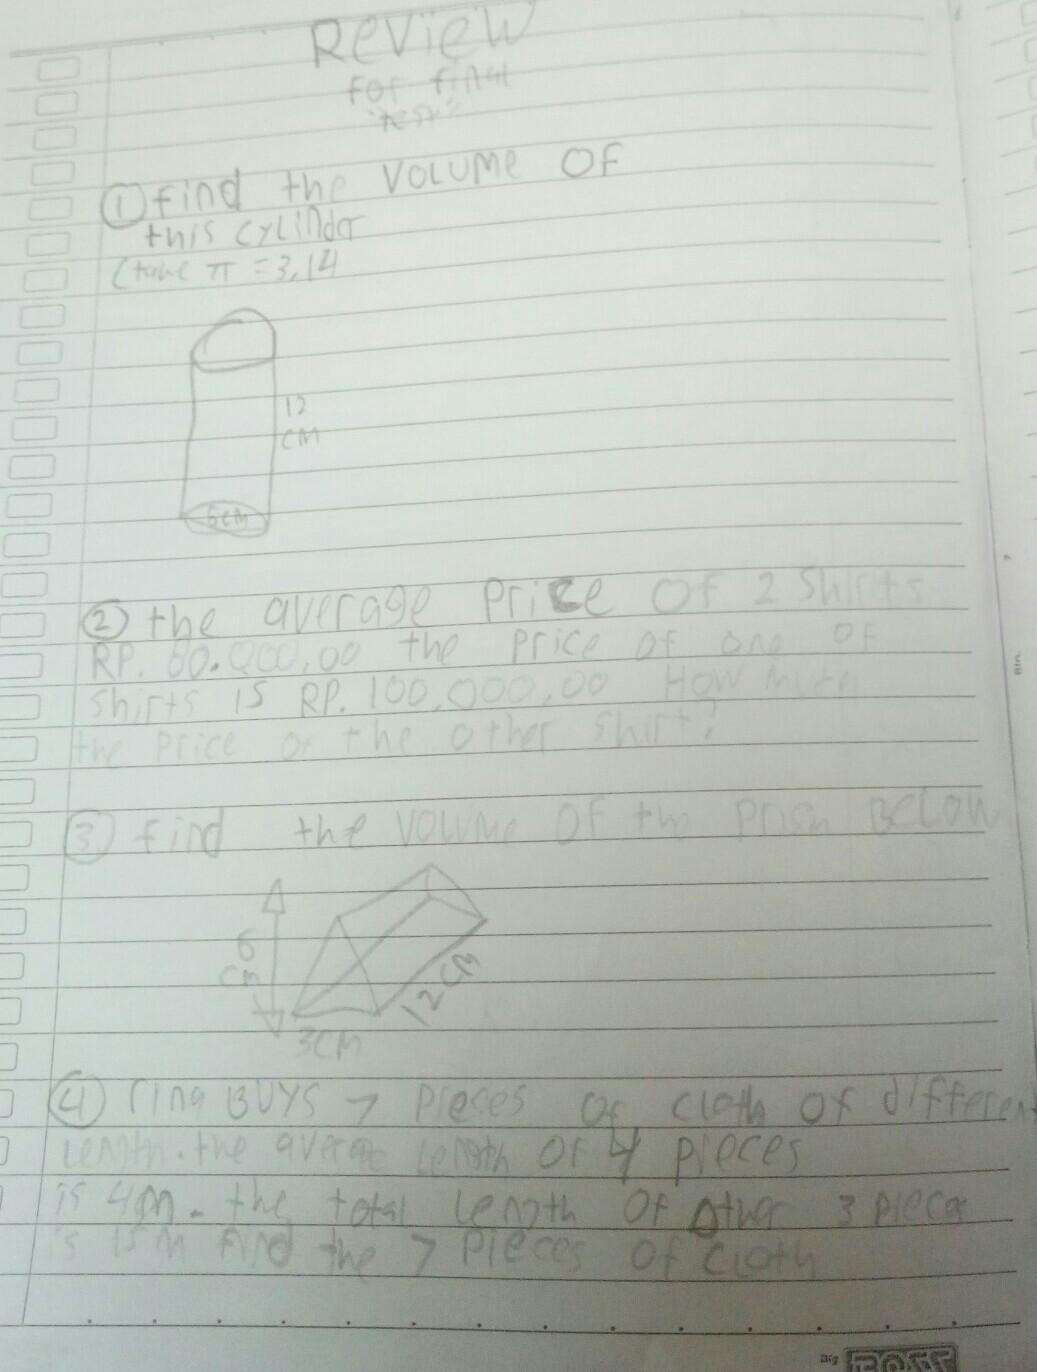 Review
For final
"test"
① find the VOLUME OF
this cylinder
(take π = 3,14
12
CM
5CM
② the average Price OF 2 Shirts
RP. 80.000,00 the price of one OF
Shirts is RP. 100.000,00 How much
the Price of the other shirt?
③ find the VOLUME OF the Prism BELOW
6
CM
12 CM
3CM
④ rina BUYS 7 pieces OF cloth of different
Length. the average Length OF 4 pieces
is 4m. the total Length OF other 3 piece
is 15m Find the 7 Pieces OF cloth
Big
BOSS